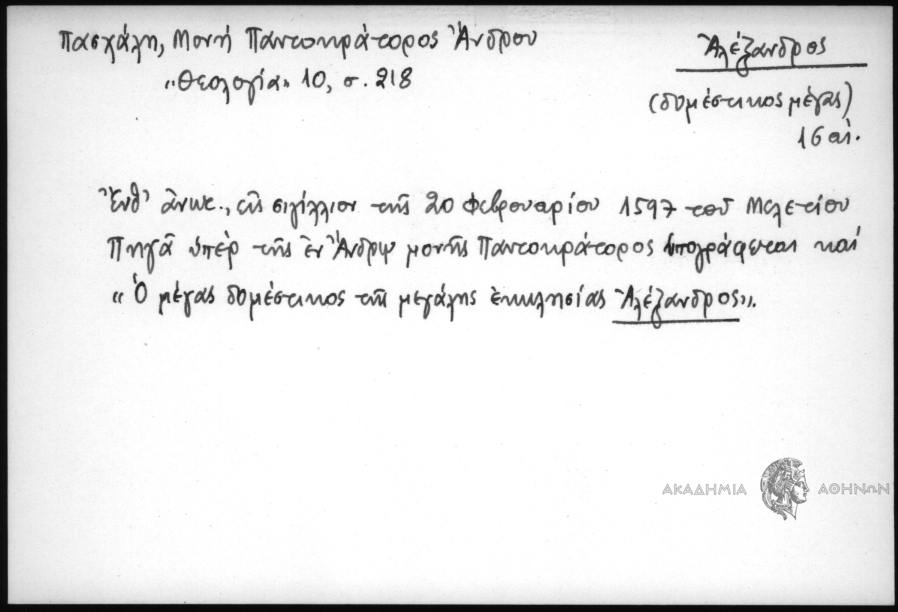 Πασχάλη, Μονή Παντοκράτορος Ἄνδρου
«Θεολογία» 10, σ. 218
Ἀλέξανδρος
(δομέστικος μέγας)
16 αἰ.
Ἔνθ' ἄνωτ., εἰς σιγίλλιον τῆς 20 Φεβρουαρίου 1597 τοῦ Μελετίου
Πηγᾶ ὑπὲρ τῆς ἐν Ἄνδρῳ μονῆς Παντοκράτορος ὑπογράφεται καί
«Ὁ μέγας δομέστικος τῆς μεγάλης ἐκκλησίας Ἀλέξανδρος».
ΑΚΑΔΗΜΙΑ ΑΘΗΝΩΝ